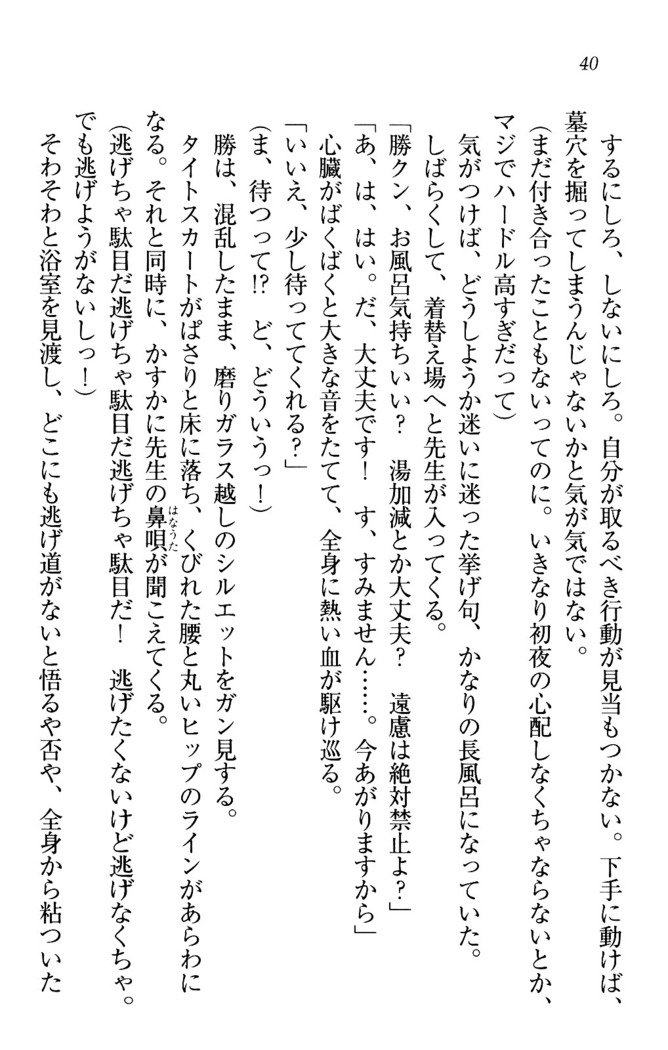 40
するにしろ、しないにしろ。自分が取るべき行動が見当もつかない。下手に動けば、
墓穴を掘ってしまうんじゃないかと気が気ではない。
(まだ付き合ったこともないってのに。いきなり初夜の心配しなくちゃならないとか、
マジでハードル高すぎだって)
気がつけば、どうしようか迷いに迷った挙げ句、かなりの長風呂になっていた。
しばらくして、着替え場へと先生が入ってくる。
「勝クン、お風呂気持ちいい?　湯加減とか大丈夫?　遠慮は絶対禁止よ?」
「あ、は、はい。だ、大丈夫です!　す、すみません……。今あがりますから」
心臓がばくばくと大きな音をたてて、全身に熱い血が駆け巡る。
「いいえ、少し待っててくれる?」
(ま、待つって!?　ど、どういうっ!)
勝は、混乱したまま、磨りガラス越しのシルエットをガン見する。
タイトスカートがぱさりと床に落ち、くびれた腰と丸いヒップのラインがあらわに
なる。それと同時に、かすかに先生の鼻唄はなうたが聞こえてくる。
(逃げちゃ駄目だ逃げちゃ駄目だ逃げちゃ駄目だ!　逃げたくないけど逃げなくちゃ。
でも逃げようがないしっ!)
そわそわと浴室を見渡し、どこにも逃げ道がないと悟るや否や、全身から粘ついた